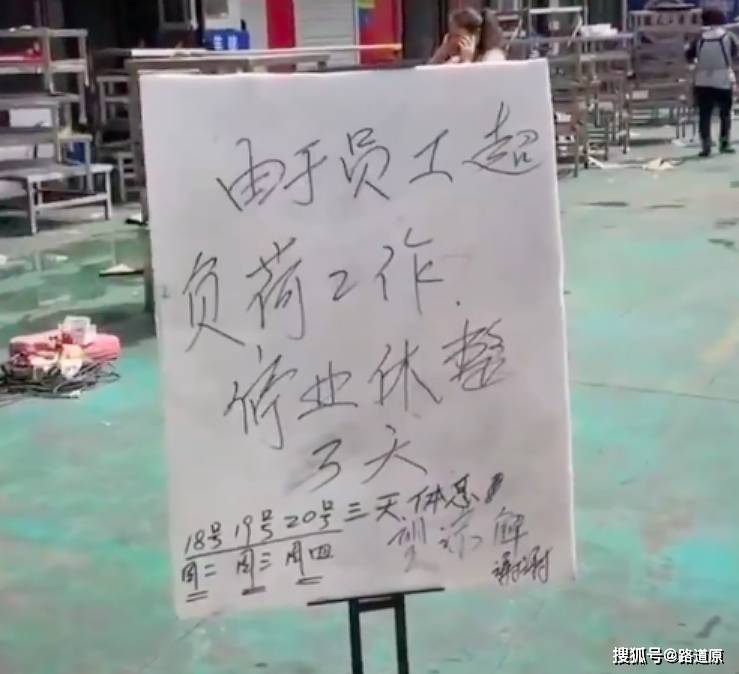 由于员工超
负荷工作.
停业休整
3天
18号19号20号三天休息
周二 周三 周四
望谅解
谢谢
搜狐号@路道原